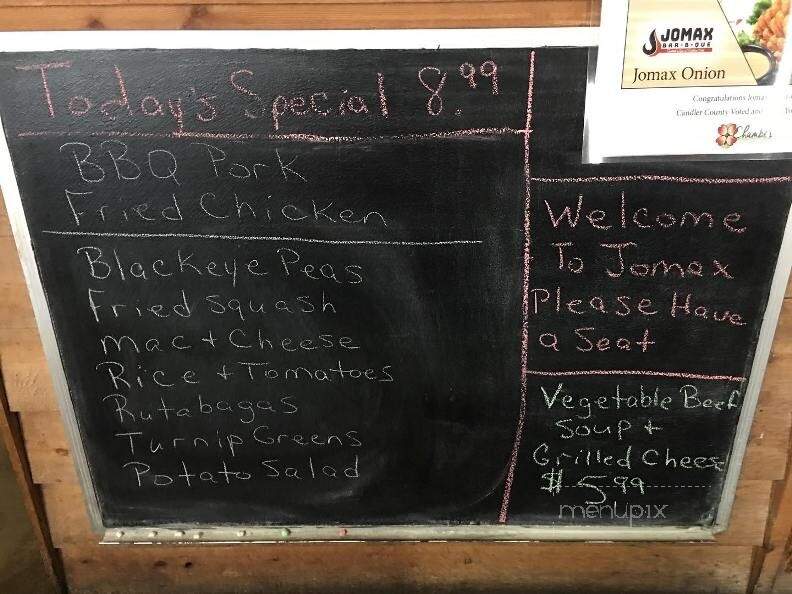 Today's Special 8.99
BBQ Pork
Fried Chicken
Blackeye Peas
Fried Squash
Mac + Cheese
Rice + Tomatoes
Rutabagas
Turnip Greens
Potato Salad
JOMAX
BAR-B-QUE
Jomax Onion
Congratulations Jomax
Candler County Voted
Chamber
Welcome
To Jomax
Please Have
a Seat
Vegetable Beef
Soup +
Grilled Chees
$ 5.99
menupix